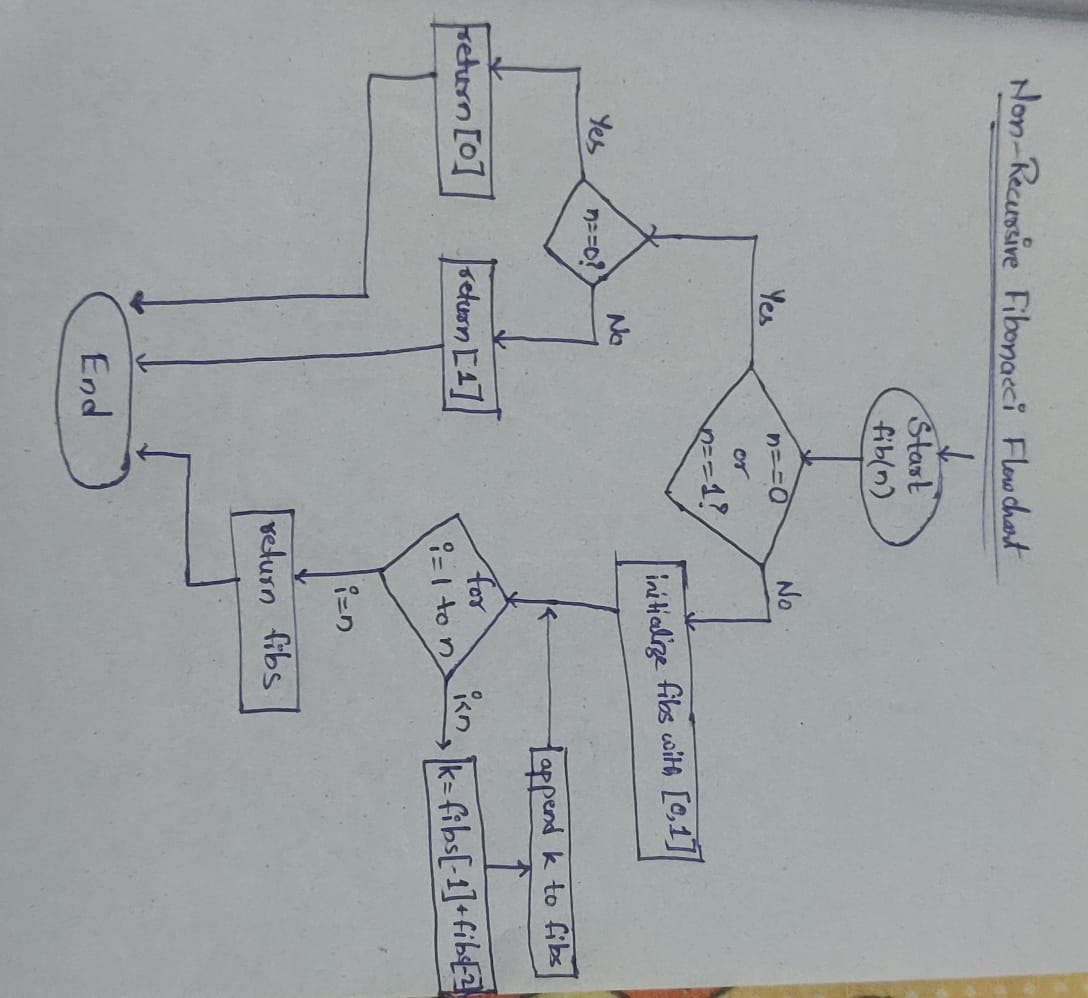 Non-Recursive Fibonacci Flowchart
Start
fib(n)
n==0
or
n==1?
Yes
No
n==0?
Yes
No
return [0]
return [1]
initialize fibs with [0,1]
for
i=1 to n
i<n
k=fibs[-1]+fibs[-2]
append k to fibs
i=n
return fibs
End